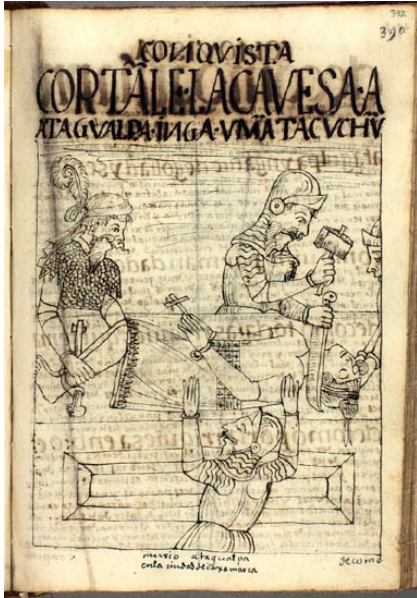 392
390
CONQVISTA
CORTÃLE·LACAVESA·A
ATAGVALPA·INGA·VMÃTACVCHṼ
murio atagualpa
en la ciudad de caxamarca
de como